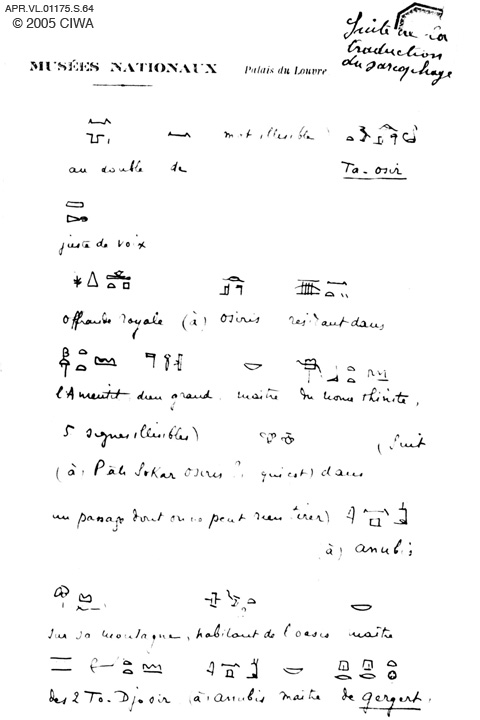 APR.VL.01175.S.64
© 2005 CIWA
Suite de la
traduction
du sarcophage
MUSÉES NATIONAUX Palais du Louvre
mot illisible
au double de Ta-osir
juste de voix
offrande royale (à) Osiris résidant dans
l'Amentit dieu grand. maître du nome thinite,
5 signes illisibles) (suit
(à) Ptah Sokar Osiris ?. qui est) dans
un passage dont on ne peut rien tirer)
(à) anubis
sur sa montagne, habitant de l'oasis maître
des 2 To-Djosir (à) anubis maître de gergert.